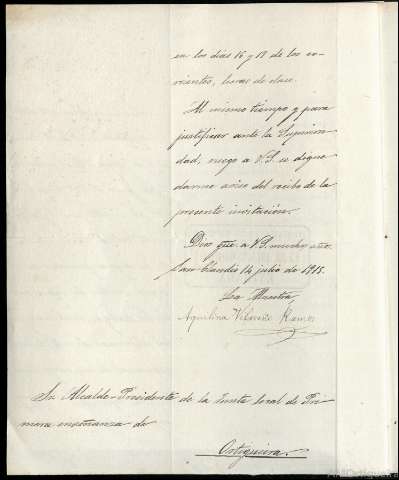 en los días 16 y 17 de los co-
rrientes, horas de clase.
Al mismo tiempo y para
justificar ante la Superiori-
dad, ruego a V.S. se digne
darme aviso del recibo de la
presente invitación.
Dios gue. a V.S. muchos años.
San Claudio 14 julio de 1915.
La Maestra
Aquilina Ramos
Sr. Alcalde-Presidente de la Junta local de Pri-
mera enseñanza de
Ortigueira.